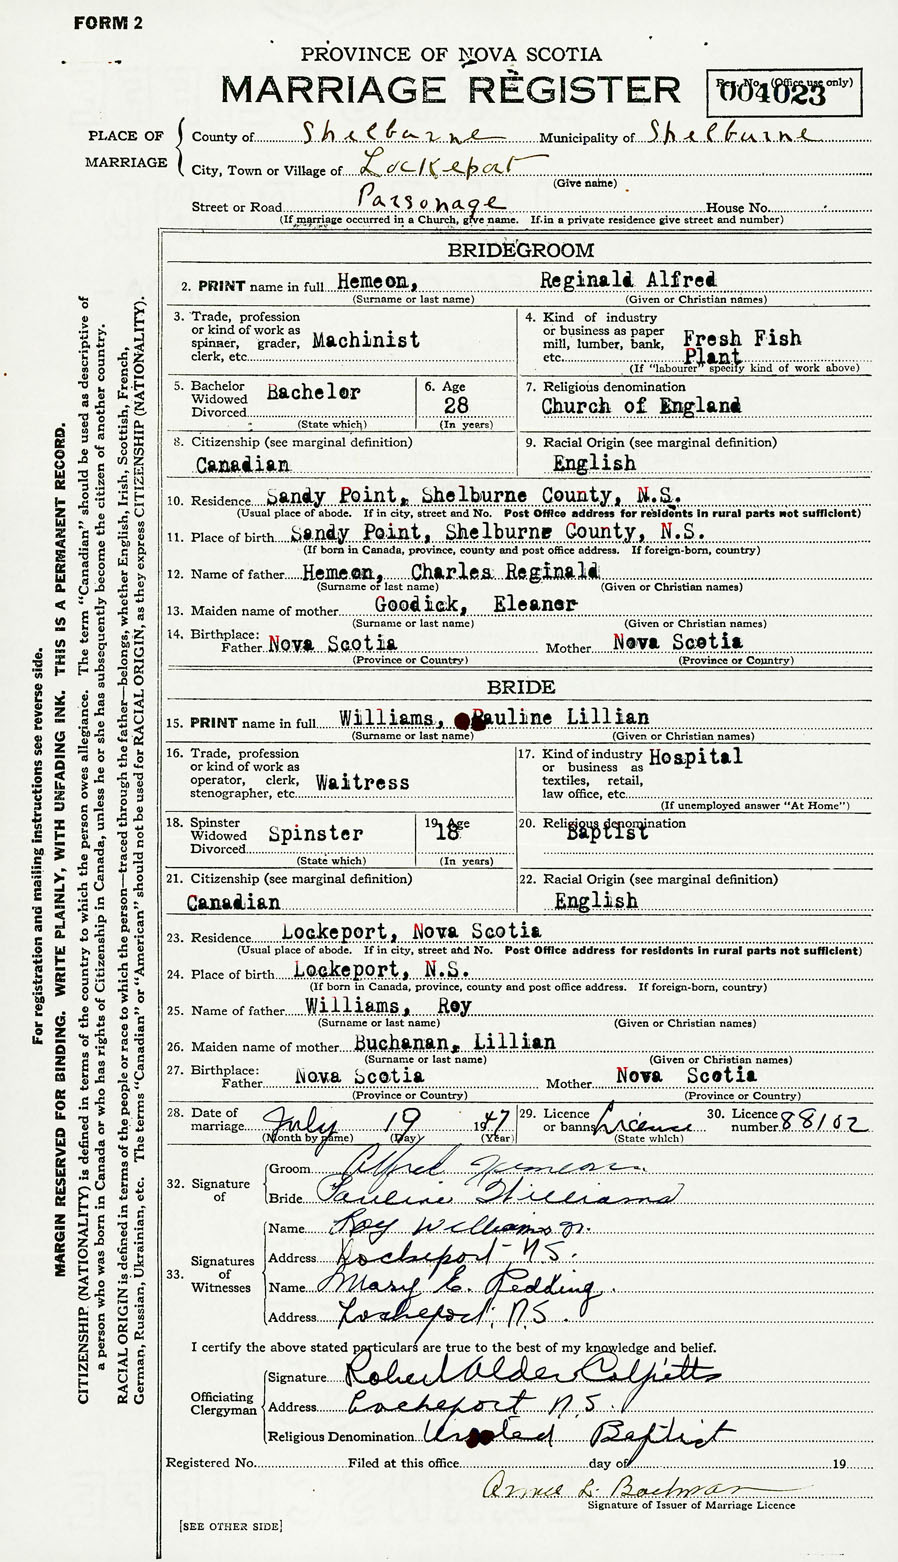 FORM 2
PROVINCE OF NOVA SCOTIA
MARRIAGE REGISTER
Reg. No. (Office use only)
004023
PLACE OF MARRIAGE
County of Shelburne Municipality of Shelburne
City, Town or Village of Lockeport
(Give name)
Street or Road Parsonage House No.
(If marriage occurred in a Church, give name. If in a private residence give street and number)
BRIDEGROOM
2. PRINT name in full Hemeon, Reginald Alfred
(Surname or last name) (Given or Christian names)
3. Trade, profession or kind of work as spinner, grader, clerk, etc. Machinist
4. Kind of industry or business as paper mill, lumber, bank, etc. Fresh Fish Plant
(If "labourer" specify kind of work above)
5. Bachelor Widowed Divorced Bachelor
(State which)
6. Age 28
(In years)
7. Religious denomination
Church of England
8. Citizenship (see marginal definition)
Canadian
9. Racial Origin (see marginal definition)
English
10. Residence Sandy Point, Shelburne County, N.S.
(Usual place of abode. If in city, street and No. Post Office address for residents in rural parts not sufficient)
11. Place of birth Sandy Point, Shelburne County, N.S.
(If born in Canada, province, county and post office address. If foreign-born, country)
12. Name of father Hemeon, Charles Reginald
(Surname or last name) (Given or Christian names)
13. Maiden name of mother Goodick, Eleanor
(Surname or last name) (Given or Christian names)
14. Birthplace: Father Nova Scotia Mother Nova Scotia
(Province or Country) (Province or Country)
BRIDE
15. PRINT name in full Williams, Pauline Lillian
(Surname or last name) (Given or Christian names)
16. Trade, profession or kind of work as operator, clerk, stenographer, etc. Waitress
17. Kind of industry or business as textiles, retail, law office, etc. Hospital
(If unemployed answer "At Home")
18. Spinster Widowed Divorced Spinster
(State which)
19. Age 18
(In years)
20. Religious denomination
Baptist
21. Citizenship (see marginal definition)
Canadian
22. Racial Origin (see marginal definition)
English
23. Residence Lockeport, Nova Scotia
(Usual place of abode. If in city, street and No. Post Office address for residents in rural parts not sufficient)
24. Place of birth Lockeport, N.S.
(If born in Canada, province, county and post office address. If foreign-born, country)
25. Name of father Williams, Roy
(Surname or last name) (Given or Christian names)
26. Maiden name of mother Buchanan, Lillian
(Surname or last name) (Given or Christian names)
27. Birthplace: Father Nova Scotia Mother Nova Scotia
(Province or Country) (Province or Country)
28. Date of marriage July 19 1947
(Month by name) (Day) (Year)
29. Licence or banns Licence
(State which)
30. Licence number 88102
32. Signature of
Groom Alfred Hemeon
Bride Pauline Williams
33. Signatures of Witnesses
Name Roy Williams Jr.
Address Lockeport - N.S.
Name Mary E. Redding.
Address Lockeport, N.S.
I certify the above stated particulars are true to the best of my knowledge and belief.
Officiating Clergyman
Signature Robert Alder Colpitts
Address Lockeport N.S.
Religious Denomination United Baptist
Registered No. Filed at this office day of 19
Annie L. Bachman
Signature of Issuer of Marriage Licence
[SEE OTHER SIDE]
For registration and mailing instructions see reverse side.
MARGIN RESERVED FOR BINDING. WRITE PLAINLY, WITH UNFADING INK. THIS IS A PERMANENT RECORD.
CITIZENSHIP (NATIONALITY) is defined in terms of the country to which the person owes allegiance. The term "Canadian" should be used as descriptive of
a person who was born in Canada or who has rights of Citizenship in Canada, unless he or she has subsequently become the citizen of another country.
RACIAL ORIGIN is defined in terms of the people or race to which the person—traced through the father—belongs, whether English, Irish, Scottish, French,
German, Russian, Ukrainian, etc. The terms "Canadian" or "American" should not be used for RACIAL ORIGIN, as they express CITIZENSHIP (NATIONALITY).